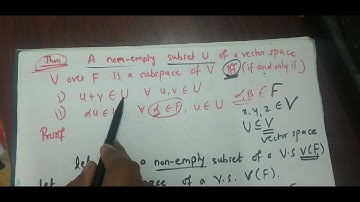 Thm A non-empty subset U of a vector space
V over F is a subspace of V iff (if and only if)
i) u+v ∈ U ∀ u, v ∈ U. α, β ∈ F
ii) αu ∈ ∀ α ∈ F, u ∈ U x, y, z ∈ V
U ⊆ V
Proof vector space
let a non-empty subset of a V.S V(F)
let space of a V.S. V(F).